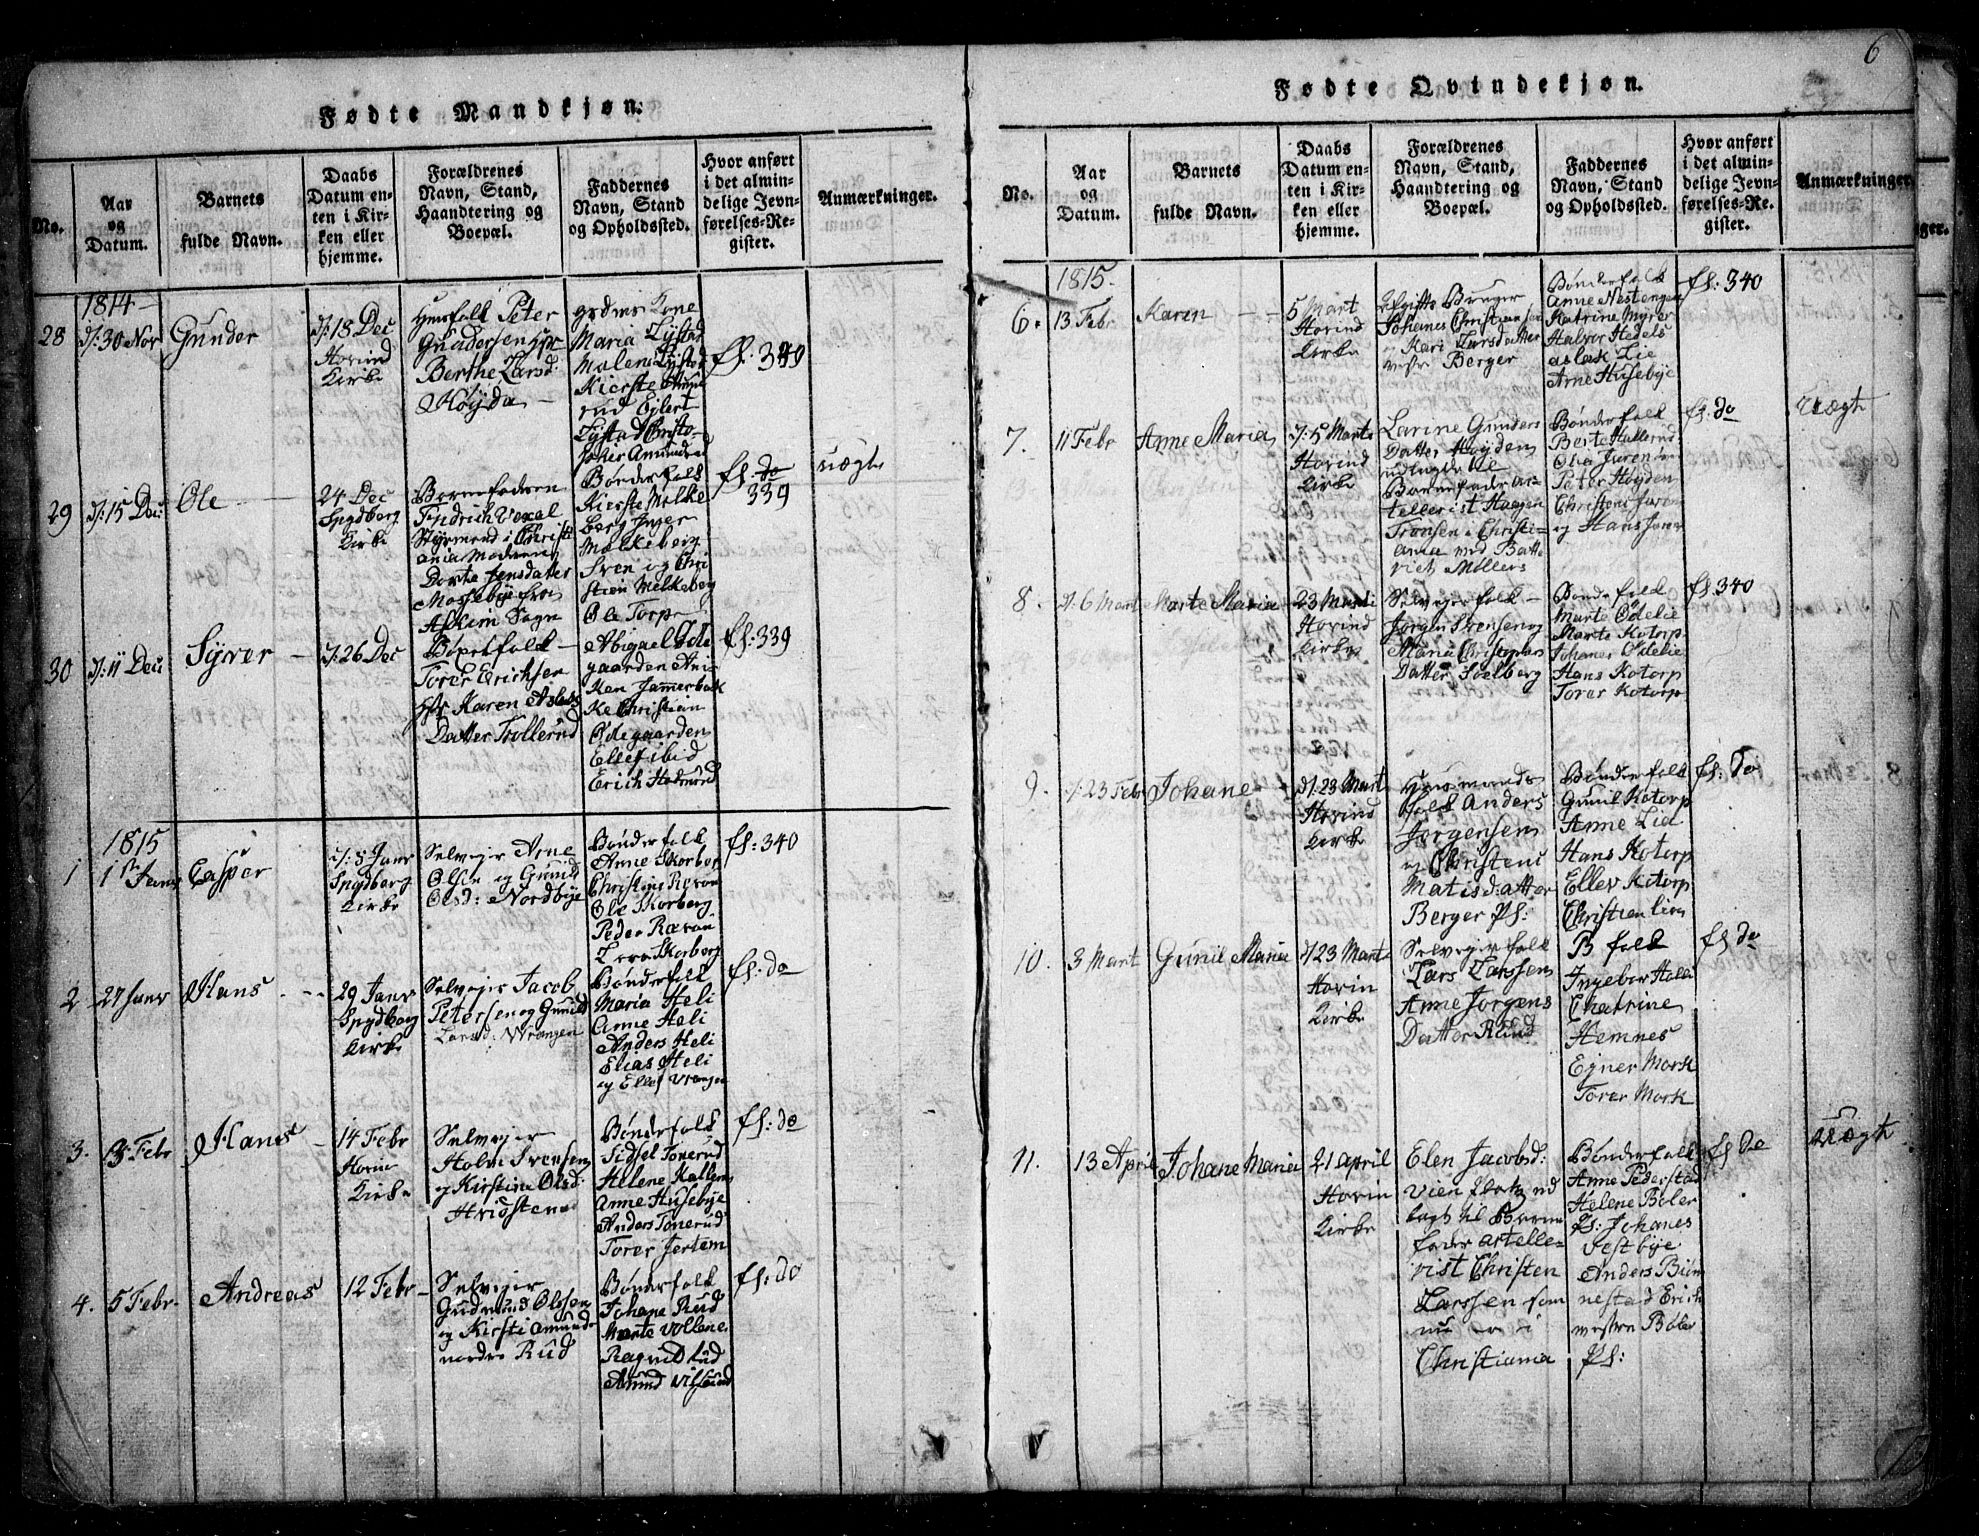 6
Fødte Mandkjøn.
No.
Aar
og
Datum.
Barnets
fulde Navn.
Daabs
Datum en-
ten i Kir-
ken eller
hjemme.
Forældrenes
Navn, Stand,
Haandtering og
Boepæl.
Faddernes
Navn, Stand
og Opholdssted.
Hvor anført
i det almin-
delige Jevn-
førelses-Re-
gister.
Anmærkninger.
1814
28
d: 30 Nov
Gunder
d: 18 Dec
Hovind
Kirke
Huusfolk Peter
Gundersen
Berthe Larsd:
Høyda
Kone
Maria Lystad
Malene Lystad
Kierste
rud Ejlert
Lystad Christo-
Amundrud
fl: 340
29
d: 15 Dec
Ole
24 Dec
Spydberg
Kirke
Barnefaderen
Styrmand i Christi
ania Moderen
Dorte Jensdatter
Mossebye fra
Askem Sogn
Bønderfolk
Kierste Melke
berg Inger
Melkeberg
Sven og Chri
stien Melkeberg
Ole Torp
fl: do
339
uægte
30
d: 11 Dec
Syver
d: 26 Dec
folk
Torer Erichsen
Karen Aslaks
Datter Trollerud
Abigael Øde
gaarden Ani
ken Jammerbak
ke Christian
Ødegaarden
Ellef ibid
Erich
fl: 339
1815
1
1ste Janr
Casper
d: 5 Janr
Spydberg
Kirke
Selvejer Arne
Olsen og Gunild
Olsd: Nordbye
Bønderfolk
Anne Skorberg
Ole Skorberg
Skorberg
fl: 340
2
27 Janr
Hans
29 Janr
Spydberg
Kirke
Selvejer Jacob
Petersen og Gunild
Larsd: Wrangen
Bønderfolk
Maria Heli
Anne Heli
Anders Heli
Elias Heli
og Ellef Vrangen
fl: do
3.
Febr
Hans
14 Febr
Hovin
Kirke
Selvejer
Holm Svensen
og Kirstine Olsd:
Bønderfolk
Sidsel Tonerud
Helene
Anne Husebye
Anders Tonerud
Torer Jertem
fl: do
4.
5 Febr
Andreas
12 Febr
Selvejer
Gudmund Olssen
og Kirsti Amunds
nordre Rud
Bønderfolk
Johane Rud
Marte Vollene
Ragnild Rud
Amund
fl: do
Fødte Qvindekjøn.
No.
Aar
og
Datum.
Barnets
fulde Navn.
Daabs
Datum en-
ten i Kir-
ken eller
hjemme.
Forældrenes
Navn, Stand,
Haandtering og
Boepæl.
Faddernes
Navn, Stand
og Opholdssted.
Hvor anført
i det almin-
delige Jevn-
førelses-Re-
gister.
Anmærkninger.
1815.
6.
13 Febr
Karen
5 Mart
Hovind
Kirke
Bruger
Johanes Christiansen
og Kari Larsdatter
vestre Berger
Bønderfolk
Anne Nestengen
Katrine Myrer
Halvor Hedels
aslak Lie
Arne Husebye
fl: 340
7.
11 Febr
Anne Maria
d: 5 Marts
Hovind
Kirke
Larine Gunders
Datter Høyden
udlagde til
Barnefader Ar-
tellerist Haagen
Tronsen i Christi-
ania ved Batte
riet Møllers
Bønderfolk
Berte Hallerud
Olia Jaren
Peter Høyden
Christens Jaren
og Hans Jaren
fl: do
uægte
8.
d: 6 Mart
Marte Maria
23 Marti
Hovind
Kirke
Selvejerfolk
Jørgen Svensen og
Maria Christophers
Datter Soelberg
Bønderfolk
Marte Ødelie
Marte Kotorp
Johanes Ødelie
Hans Kotorp
Torer Kotorp
fl: 340
9.
d: 23 Febr
Johane
d: 23 Mart
Hovind
Kirke
Huusmands
folk Anders
Jørgensen
og Christens
Matisdatter
Berger Pl:
Bønderfolk
Gunil Kotorp
Anne Lie
Hans Kotorp
Ellev Kotorp
Christien Lien
fl: Do
10.
3 Mart
Gunil Maria
d 23 Marts
Hovin
Kirke
Selvejerfolk
Lars Larssen
Anne Jørgens
Datter Ruud
B folk
Ingebor
Chatrine
Hemnes
Ejner Mork
Torer Mork
fl do
11.
13 April
Johane Maria
21 April
Hovin
Kirke
Elen Jacobsd:
ud
lagt til Barne
fader artelle-
rist Christen
Larssen som
nu er i
Christiania
Bønderfolk
Anne Pederstad
Helene Boler
Pl: Johanes
Festbye
Anders Bun
nestad Erich
vestre Bøler
Pl:
fl Do
uægte